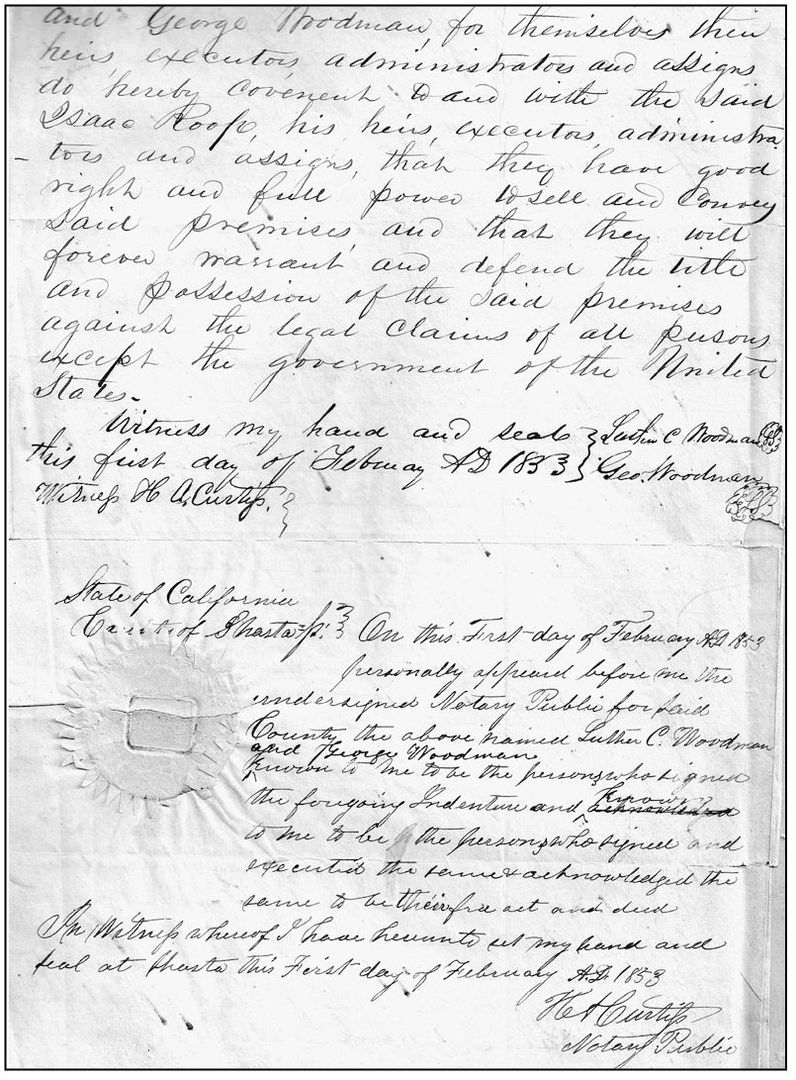 and George Woodman, for themselves their
heirs, executors, administrators and assigns
do hereby covenent to and with the said
Isaac Roop, his heirs, executors, administra-
tors and assigns, that they have good
right and full power to sell and Convey
said premises and that they will
forever warrant and defend the title
and possession of the said premises
against the legal claims of all persons
except the government of the United
States.
Witness my hand and seal } Luther C Woodman
this first day of February AD 1853 } Geo. Woodman
Witness H A, Curtiss. }
State of California
County of Shasta ss. } On this First day of February AD 1853
personally appeard before me the
undersigned Notary Public for said
County the above named Luther C. Woodman
and George Woodman
known to me to be the persons who signed
the foregoing Indenture and known
to me to be the persons who signed and
executed the same & acknowledged the
same to be their free act and deed
In Witness whereof I have hereunto set my hand and
seal at Shasta this First day of February A.D. 1853
H A Curtiss
Notary Public